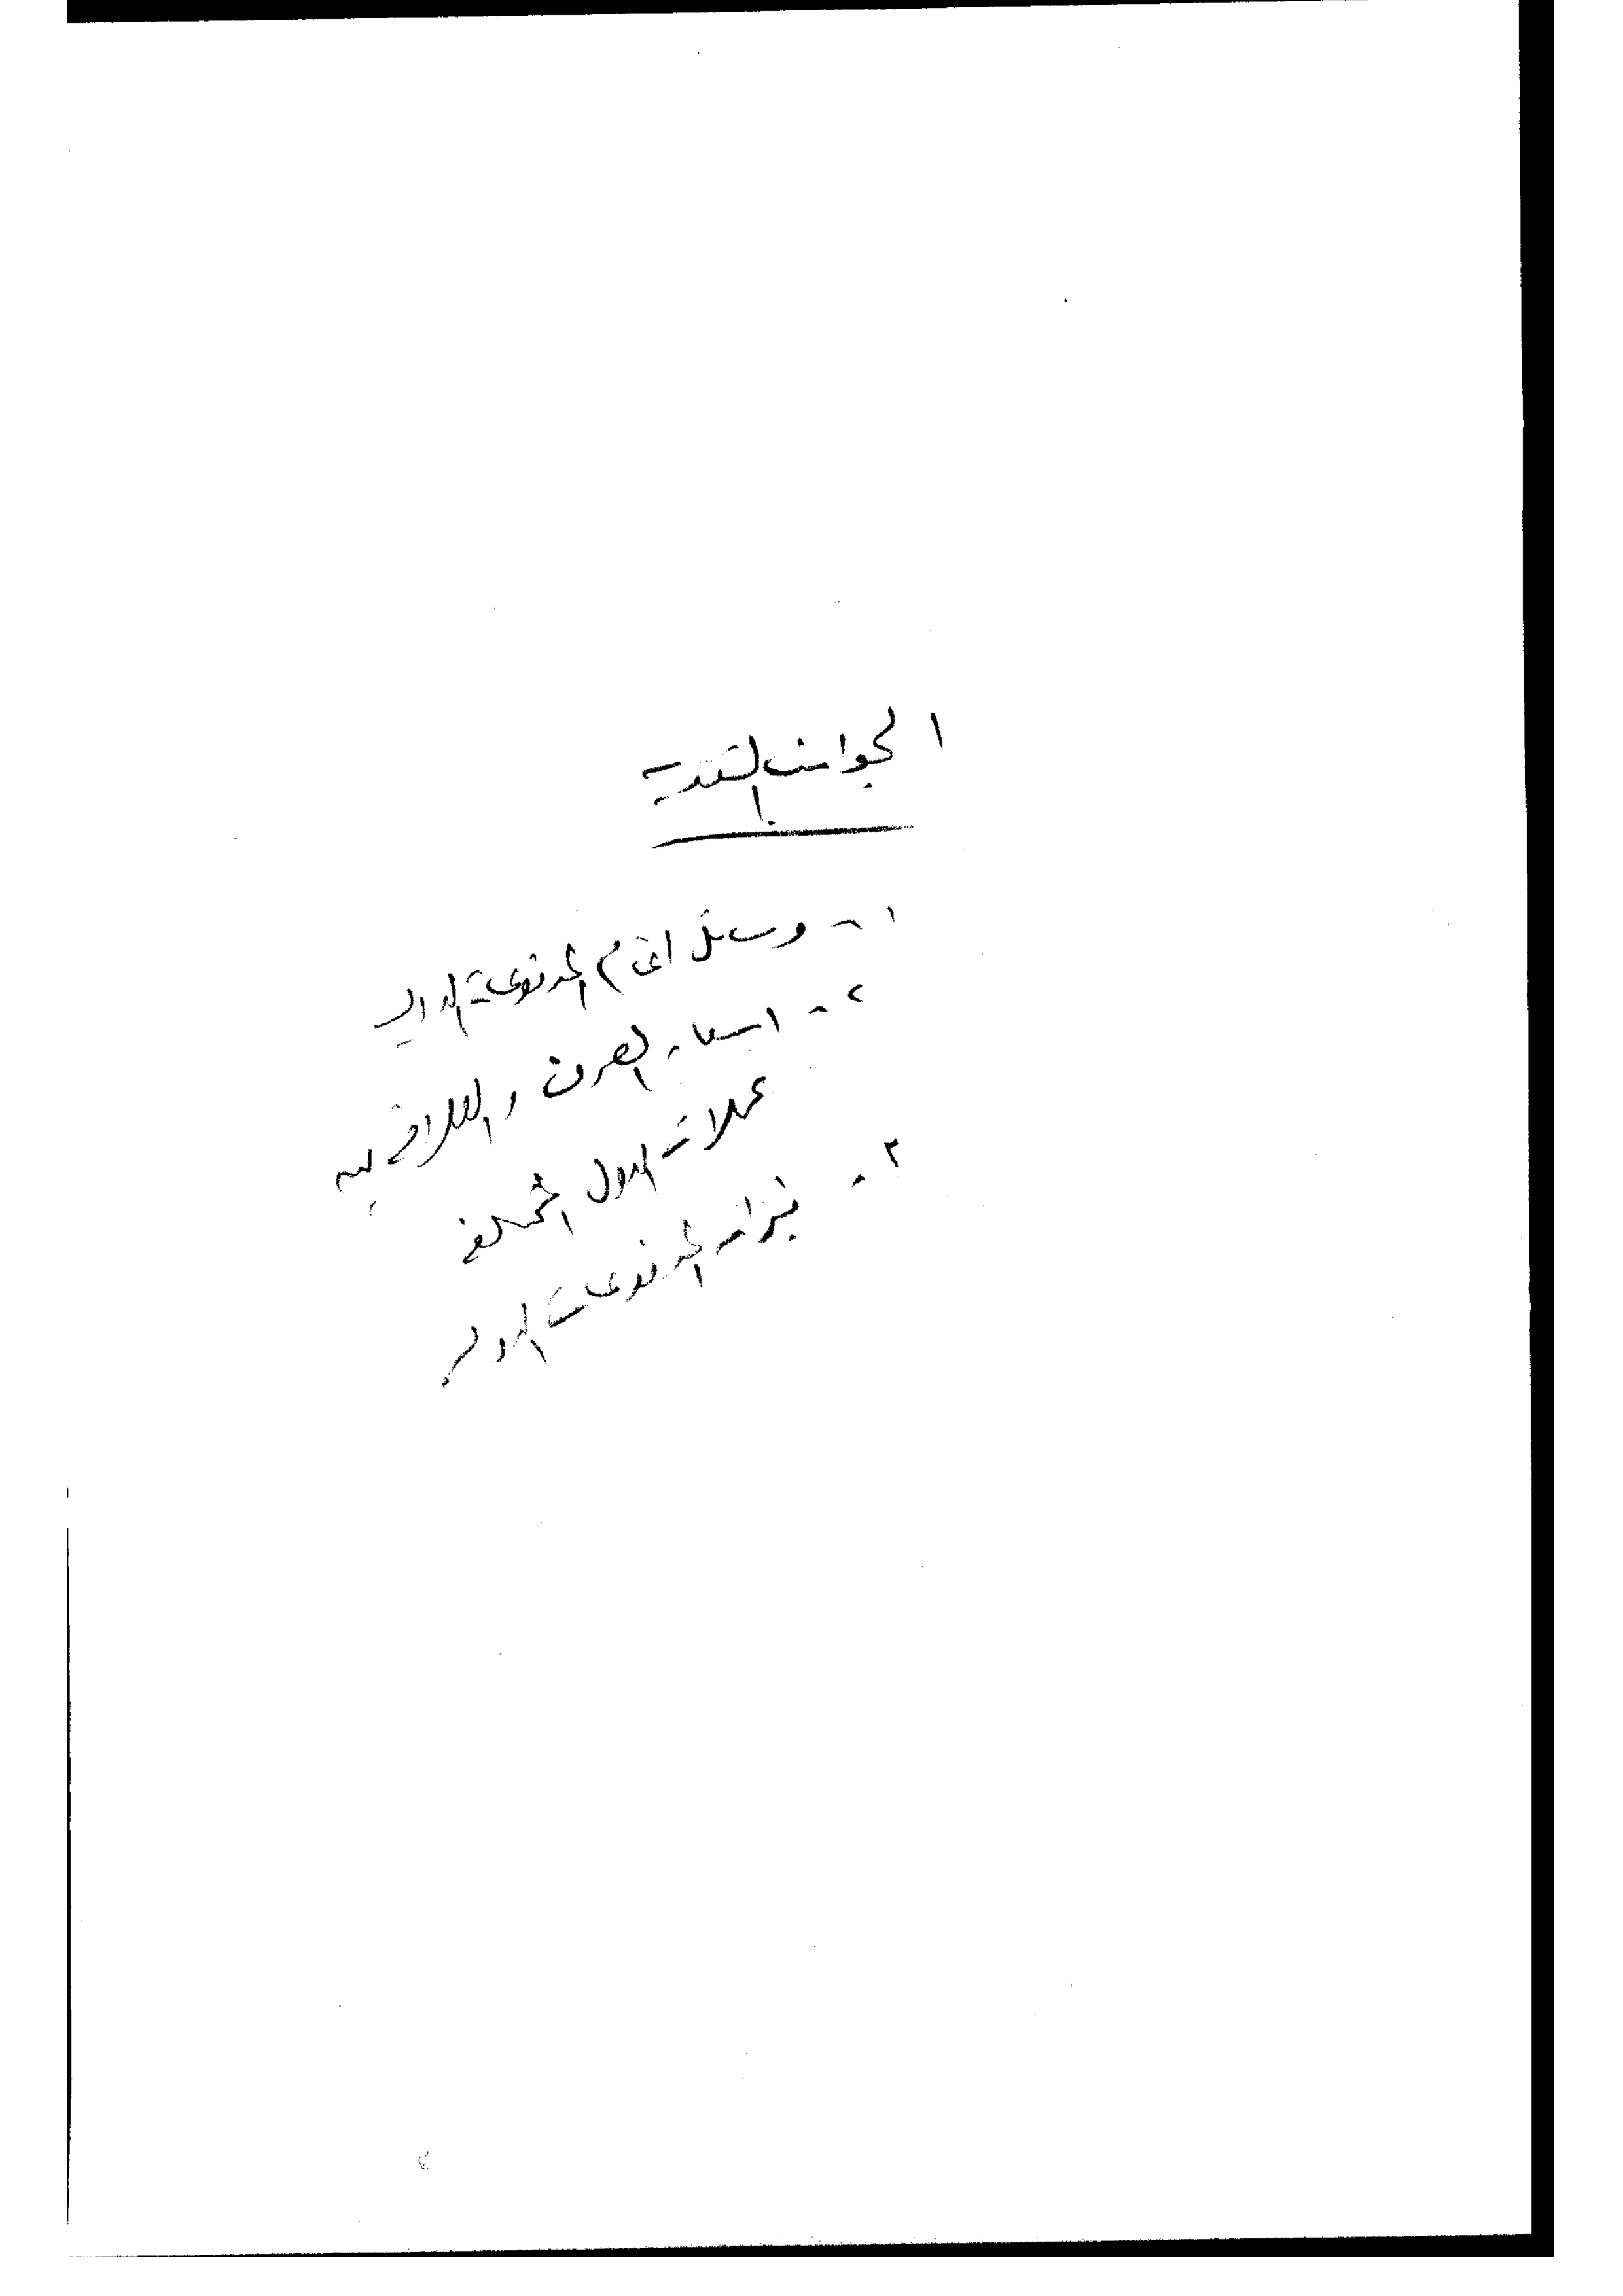 الجوانب النقدية
١- وسائل اتمام المدفوعات الدولية
٢- اسعار الصرف والعلاقة بين
عملات الدول المختلفة
٣- ميزان المدفوعات الدولية